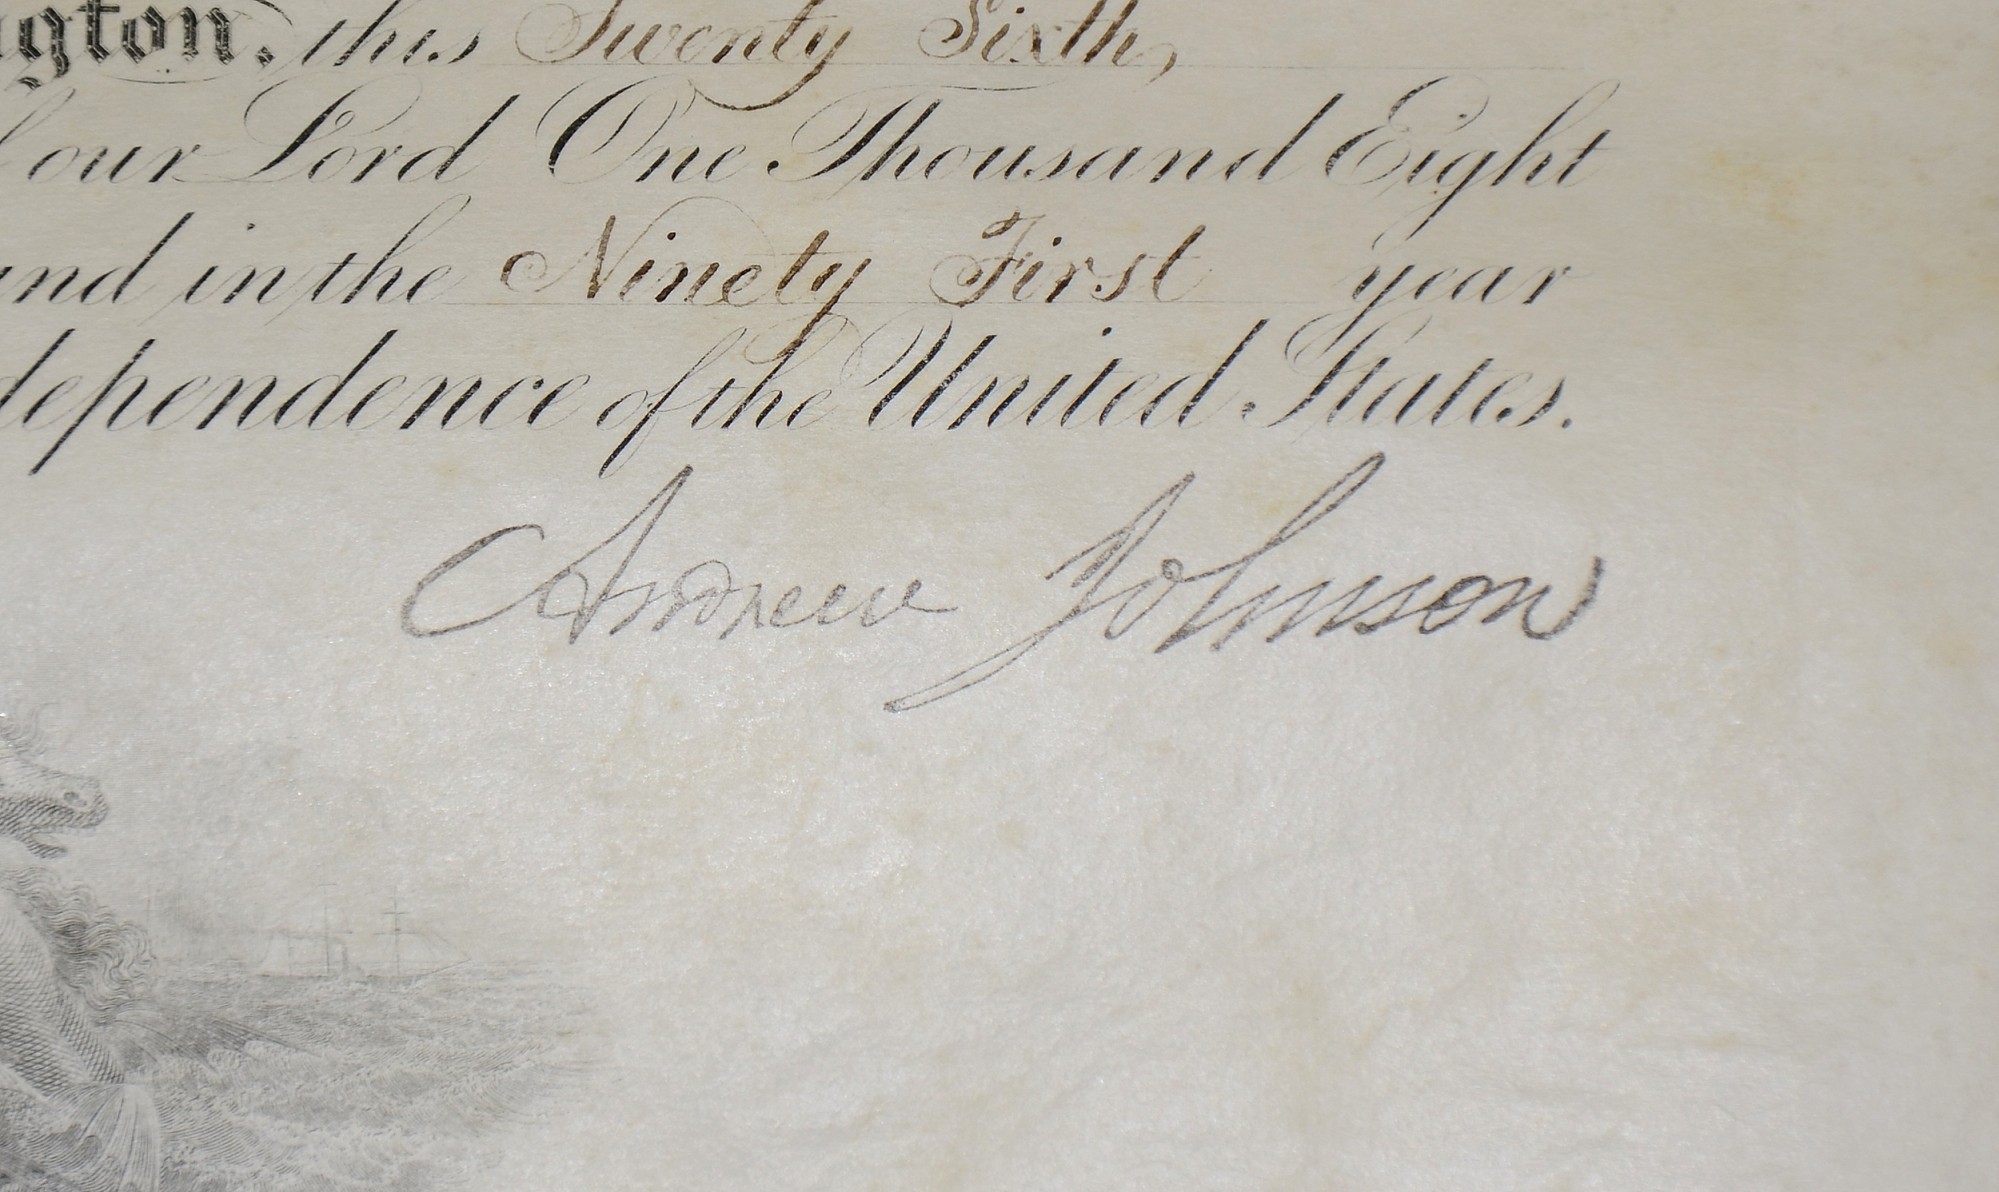 gton, this Twenty Sixth,
our Lord One Thousand Eight
and in the Ninety First year
dependence of the United States.
Andrew Johnson